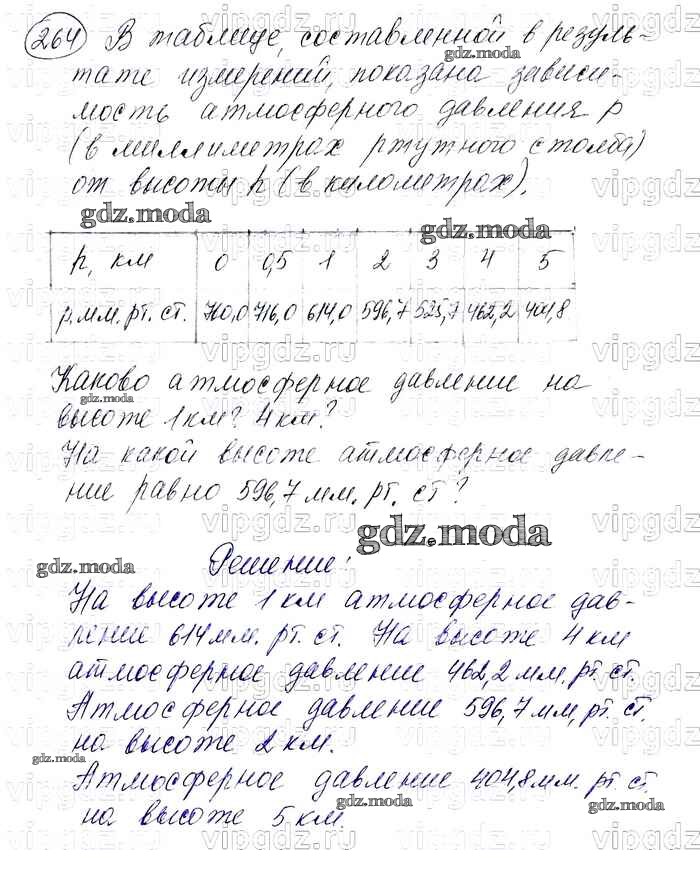 264 В таблице, составленной в резуль-
тате измерений, показана зависи-
мость атмосферного давления p
(в миллиметрах ртутного столба)
от высоты h (в километрах).
h, км 0 0,5 1 2 3 4 5
p, мм. рт. ст. 760,0 716,0 614,0 596,7 525,7 462,2 404,8
Каково атмосферное давление на
высоте 1 км? 4 км?
На какой высоте атмосферное давле-
ние равно 596,7 мм. рт. ст?
Решение:
На высоте 1 км атмосферное дав-
ление 614 мм. рт. ст. На высоте 4 км
атмосферное давление 462,2 мм. рт. ст.
Атмосферное давление 596,7 мм, рт. ст.
на высоте 2 км.
Атмосферное давление 404,8 мм. рт. ст.
на высоте 5 км.
gdz.moda
vipgdz.ru